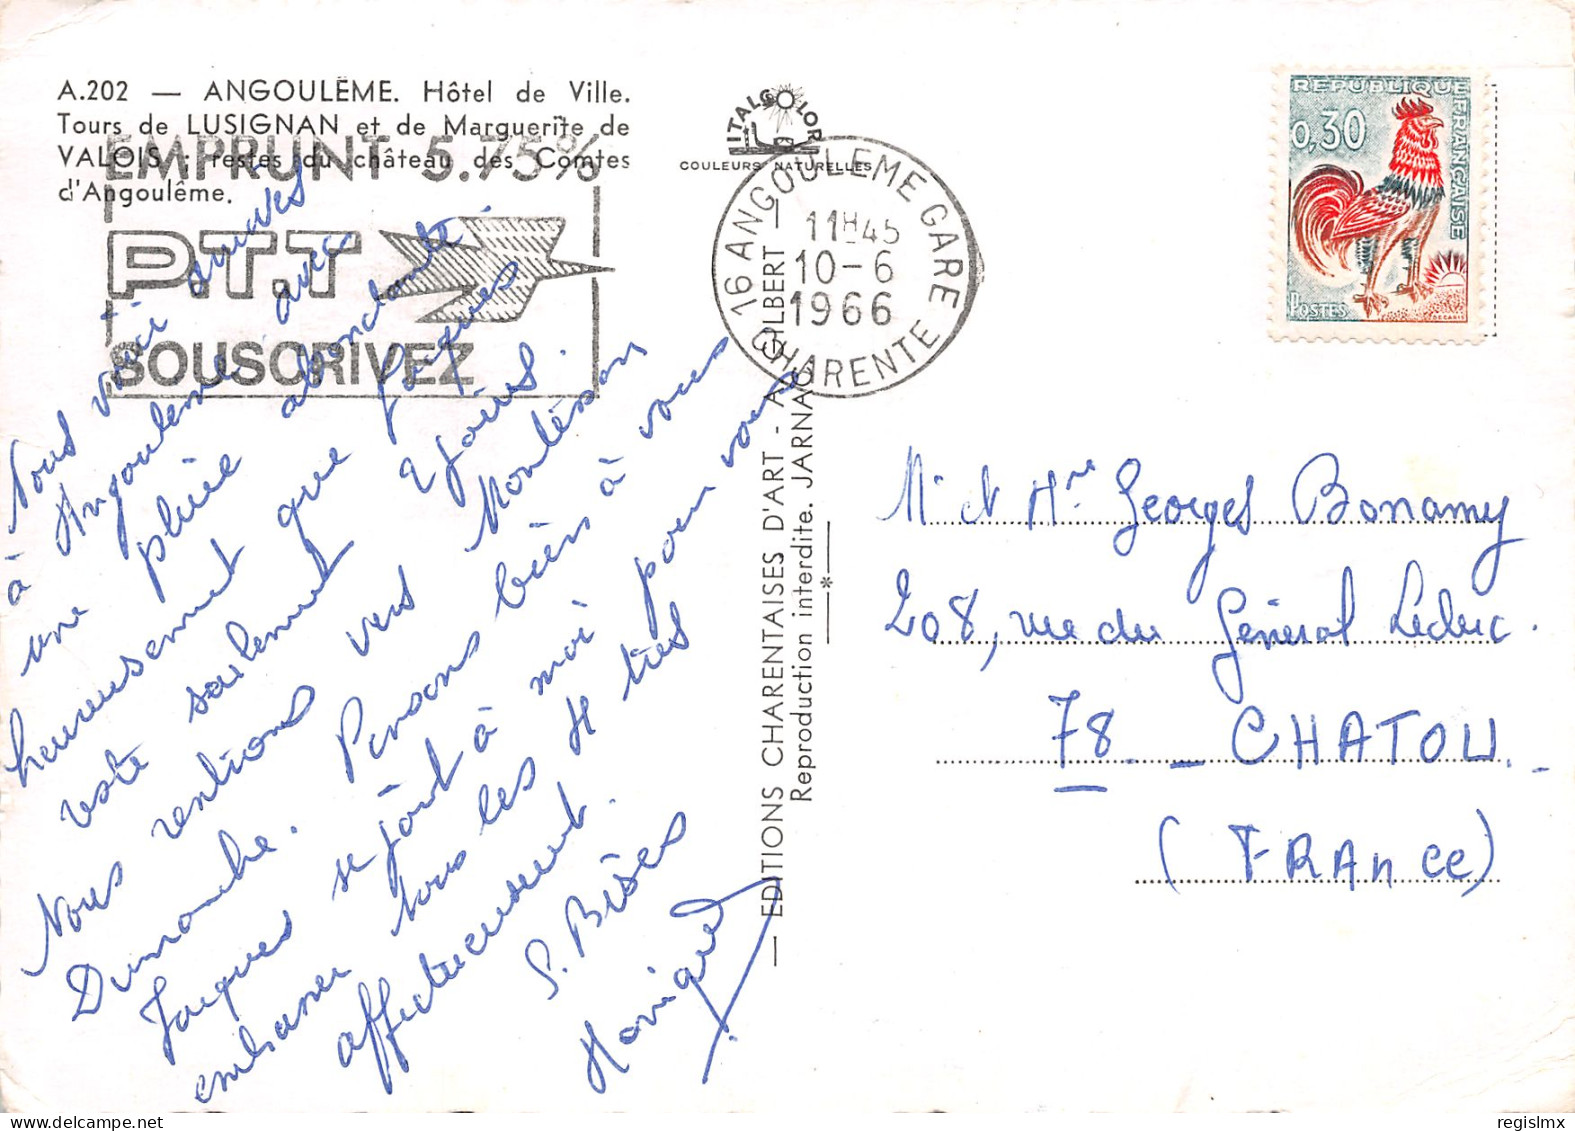 A.202 — ANGOULÊME. Hôtel de Ville.
Tours de LUSIGNAN et de Marguerite de
VALOIS ; restes du château des Comtes
d'Angoulême.
EMPRUNT 5.75%
P.T.T
SOUSCRIVEZ
ITALCOLOR
COULEURS NATURELLES
16 ANGOULEME GARE
11H45
10-6
1966
CHARENTE
REPUBLIQUE FRANÇAISE
0,30
POSTES
DECARIS
— EDITIONS CHARENTAISES D'ART - A. GILBERT —
Reproduction interdite. JARNAC
Nous voici arrivés
à Angoulême avec
une pluie abondante.
heureusement que Jacques
reste seulement 2 jours.
Nous rentrons vers Montésson
Dimanche. Pensons bien à vous
Jacques se joint à moi pour vous
embrasser tous les 4 très
affectueusement.
S. Bises
Monique
Mr et Mme Georges Bonamy
208, rue du Général Leclerc.
78 - CHATOU -
(FRANCE)
regislmx
www.delcampe.net